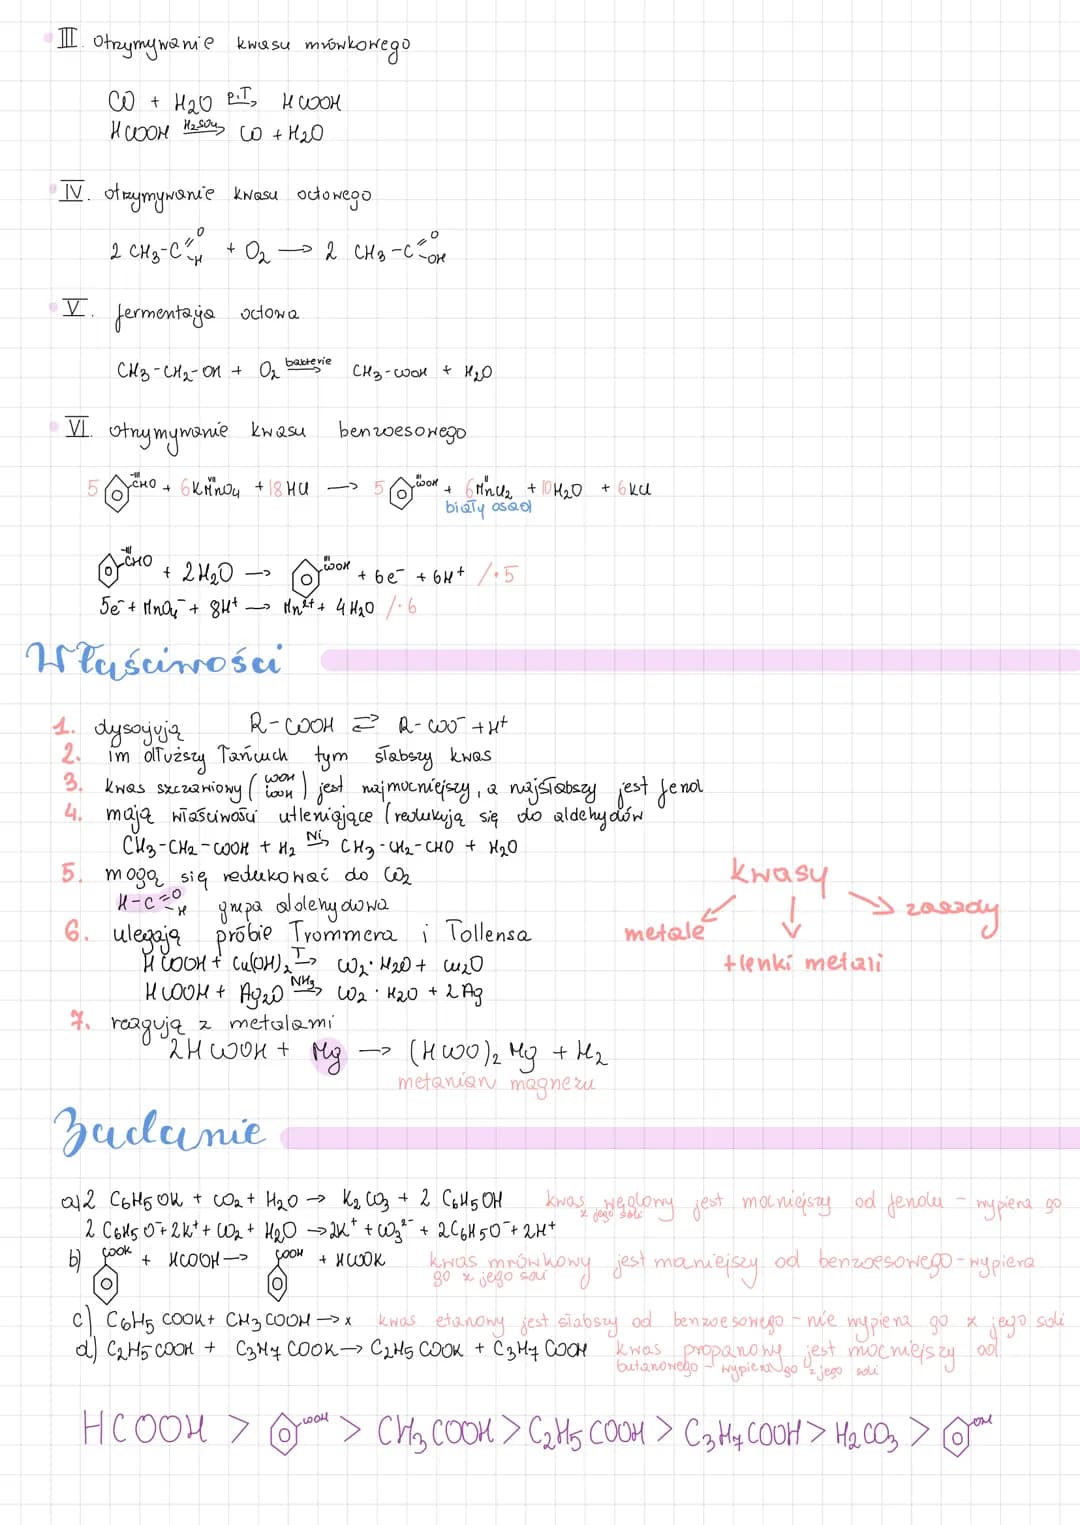 III. otrzymywanie kwasu mrówkowego
CO + H2O p.T, → HCOOH
HCOOH H2SO4 → CO + H2O
IV. otrzymywanie kwasu octowego
2 CH3-C=O-H + O2 → 2 CH3-C=O-OH
V. fermentacja octowa
CH3-CH2-OH + O2 bakterie → CH3-COOH + H2O
VI. otrzymywanie kwasu benzoesowego
5 CHO + 6KMnO4 + 18 HCl → 5 COOH + 6MnCl2 + 10H2O + 6KCl
biały osad
CHO + 2H2O → COOH + 6e⁻ + 6H⁺ /·5
5e⁻ + MnO4⁻ + 8H⁺ → Mn²⁺ + 4H2O /·6
Właściwości
1. dysocjują R-COOH ⇄ R-COO⁻ + H⁺
2. im dłuższy łańcuch tym słabszy kwas
3. kwas szczawiowy (COOH COOH) jest najmocniejszy, a najsłabszy jest fenol
4. mają właściwości utleniające (redukują się do aldehydów
CH3-CH2-COOH + H2 Ni → CH3-CH2-CHO + H2O
5. mogą się redukować do CO2
H-C=O-H grupa aldehydowa
6. ulegają próbie Trommera i Tollensa
HCOOH + Cu(OH)2 T → CO2·H2O + Cu2O
HCOOH + Ag2O NH3 → CO2·H2O + 2Ag
7. reagują z metalami
2HCOOH + Mg → (HCOO)2 Mg + H2
metanian magnezu
kwasy
metale
tlenki metali
zasady
Zadanie
a) 2 C6H5OK + CO2 + H2O → K2CO3 + 2 C6H5OH kwas węglowy jest mocniejszy od fenolu - wypiera go z jego soli
2 C6H5O⁻ + 2K⁺ + CO2 + H2O → 2K⁺ + CO3²⁻ + 2C6H5O⁻ + 2H⁺
b) COOK + HCOOH → COOH + HCOOK kwas mrówkowy jest mocniejszy od benzoesowego - wypiera go z jego soli
c) C6H5COOK + CH3COOH → x kwas etanowy jest słabszy od benzoesowego - nie wypiera go z jego soli
d) C2H5COOH + C3H7COOK → C2H5COOK + C3H7COOH kwas propanowy jest mocniejszy od butanowego - wypiera go z jego soli
HCOOH > COOH > CH3COOH > C2H5COOH > C3H7COOH > H2CO3 > OH